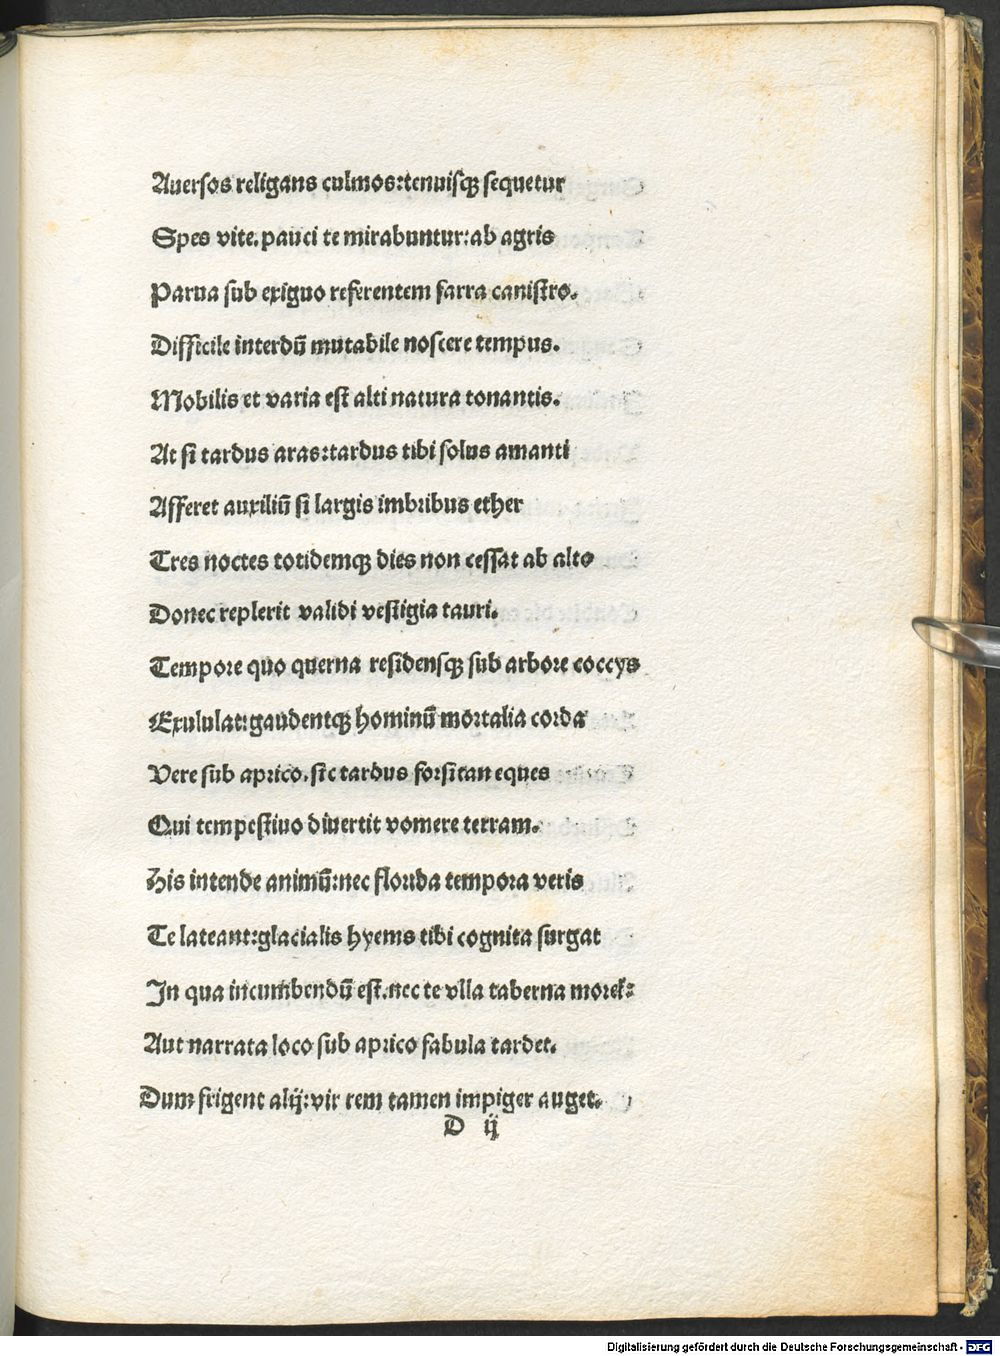 Auersos religans culmos:tenuisqꝫ sequetur
Spes vite.pauci te mirabuntur:ab agris
Parua sub exiguo referentem farra canistro.
Difficile interdū mutabile noscere tempus.
Mobilis et varia est alti natura tonantis.
At si tardus aras:tardus tibi solus amanti
Afferet auxiliū si largis imbribus ether
Tres noctes totidemqꝫ dies non cessat ab alto
Donec replerit validi vestigia tauri.
Tempore quo querna residensqꝫ sub arbore coccys
Exululat:gaudentqꝫ hominū mortalia corda
Vere sub aprico.sic tardus forsitan eques
Qui tempestiuo diuertit vomere terram.
His intende animū:nec florida tempora veris
Te lateant:glacialis hyems tibi cognita surgat
In qua incumbendū est.nec te vlla taberna moret:
Aut narrata loco sub aprico fabula tardet.
Dum frigent alij:vir rem tamen impiger auget.
D ij
Digitalisierung gefördert durch die Deutsche Forschungsgemeinschaft - DFG